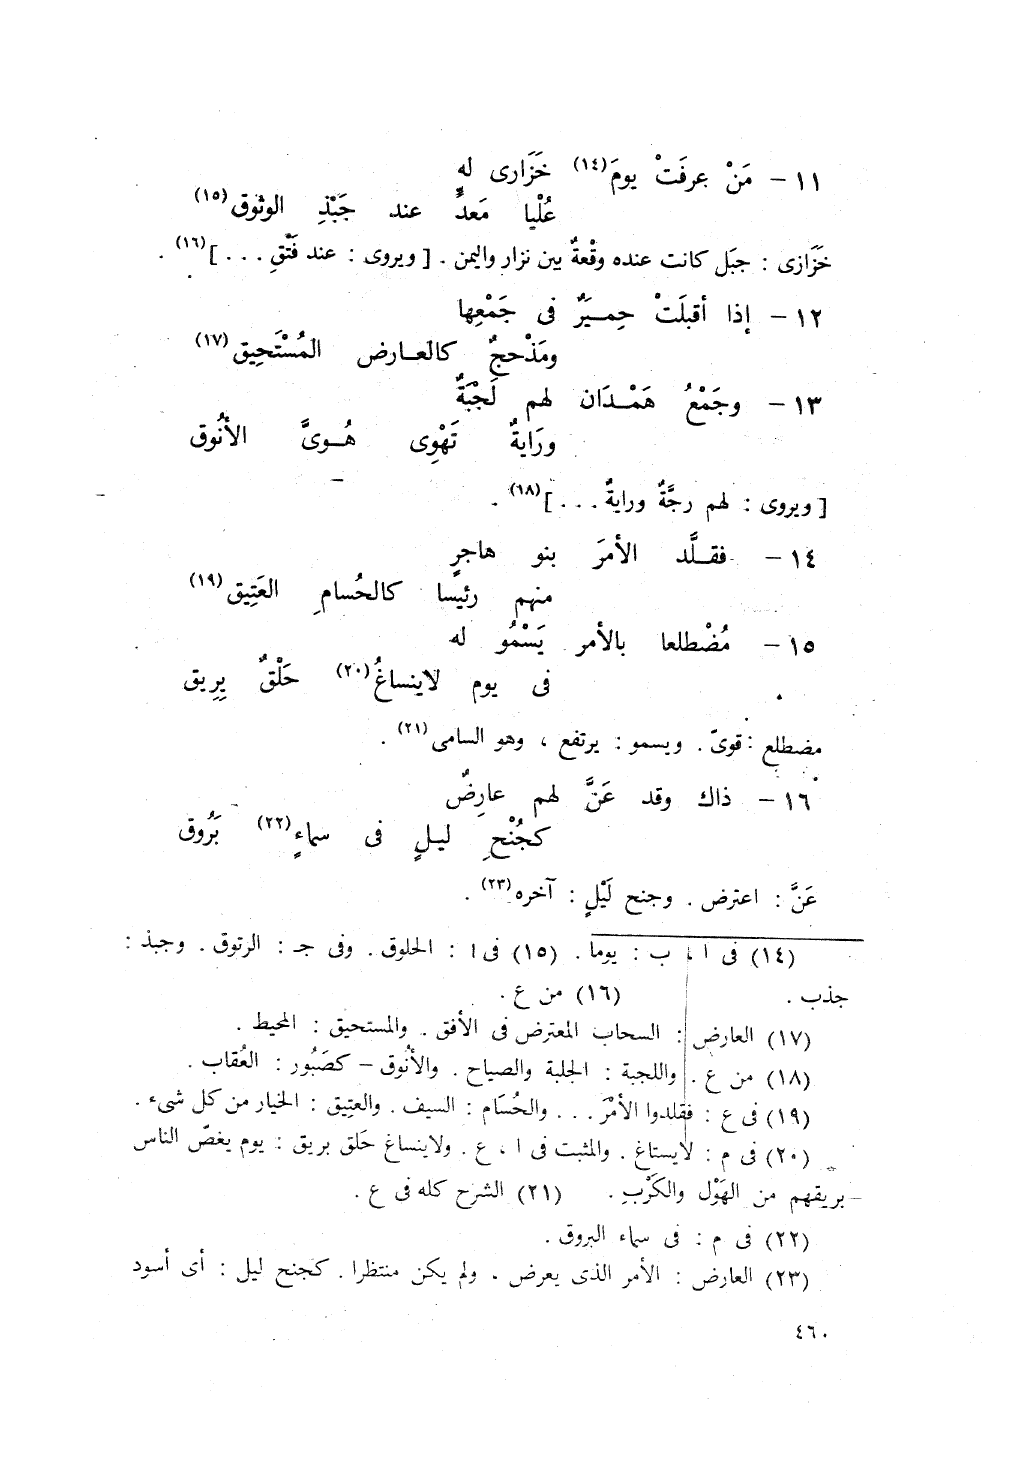 ١١ – مَنْ عرفَتْ يومَ(١٤) خَزَارى لهِ
عُلْيا مَعدٍّ عند جَبْذِ الوثوق(١٥)
خَزَازى : جبَل كانت عنده وقْعةٌ بين نزار واليمن . [ ويروى : عند فَتْقِ . . . ](١٦) .
١٢ – إذا أقبلَتْ حِميَرٌ فى جَمْعِها
ومَذْحجٌ كالعارض المُسْتَحِيق(١٧)
١٣ – وجَمْعُ هَمْدَان لهم لَجْبَةٌ
ورَايةٌ تَهْوِى هُوىَّ الأنُوق
[ ويروى : لهم رجَّةٌ ورايةٌ . . . ](١٨) .
١٤ – فقلَّد الأمرَ بنو هاجرٍ
منهم رئيسا كالحُسامِ العَتِيق(١٩)
١٥ – مُضْطلعا بالأمر يَسْمُو له
فى يوم لاينساغُ(٢٠) حَلْقٌ بِرِيق
مضطلع : قوىّ . ويسمو : يرتفع ، وهو السامى(٢١) .
١٦ – ذاك وقد عَنَّ لهم عارِضٌ
كجُنْحِ ليلٍ فى سماءٍ(٢٢) بَرُوق
عَنَّ : اعترض . وجنح لَيْلٍ : آخره(٢٣) .
(١٤) فى ا ، ب : يوما . (١٥) فى ا : الحلوق . وفى جـ : الرتوق . وجبذ :
جذب . (١٦) من ع .
(١٧) العارض : السحاب المعترض فى الأفق . والمستحيق : المحيط .
(١٨) من ع . واللجبة : الجلبة والصياح . والأنُوق – كصَبُور : العُقاب .
(١٩) فى ع : فقلدوا الأمْرَ . . . والحُسَام : السيف . والعتِيق : الخيار من كل شىء .
(٢٠) فى م : لايستاغ . والمثبت فى ا ، ع . ولاينساغ حَلق بريق : يوم يغصّ الناس
بريقهم من الهَوْل والكَرْبِ . (٢١) الشرح كله فى ع .
(٢٢) فى م : فى سماء البروق .
(٢٣) العارض : الأمر الذى يعرض . ولم يكن منتظرا . كجنح ليل : أى أسود
٤٦٠